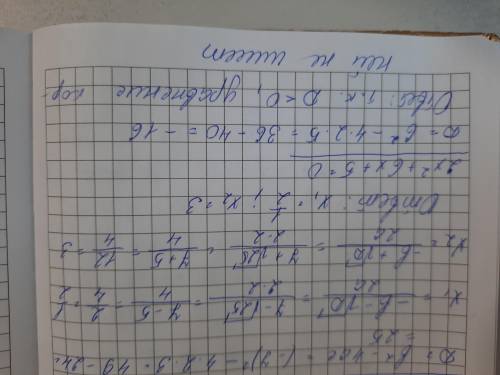 D = b² - 4ac = (-7)² - 4·2·3 = 49 - 24 =
= 25
x₁ = (-b - √D)/2a = (7 - √25)/2·2 = (7 - 5)/4 = 2/4 = 1/2
x₂ = (-b + √D)/2a = (7 + √25)/2·2 = (7 + 5)/4 = 12/4 = 3
Ответ: x₁ = 1/2 ; x₂ = 3
2x² + 6x + 5 = 0
D = 6² - 4·2·5 = 36 - 40 = -16
Ответ: т.к. D < 0, уравнение кор-
ней не имеет